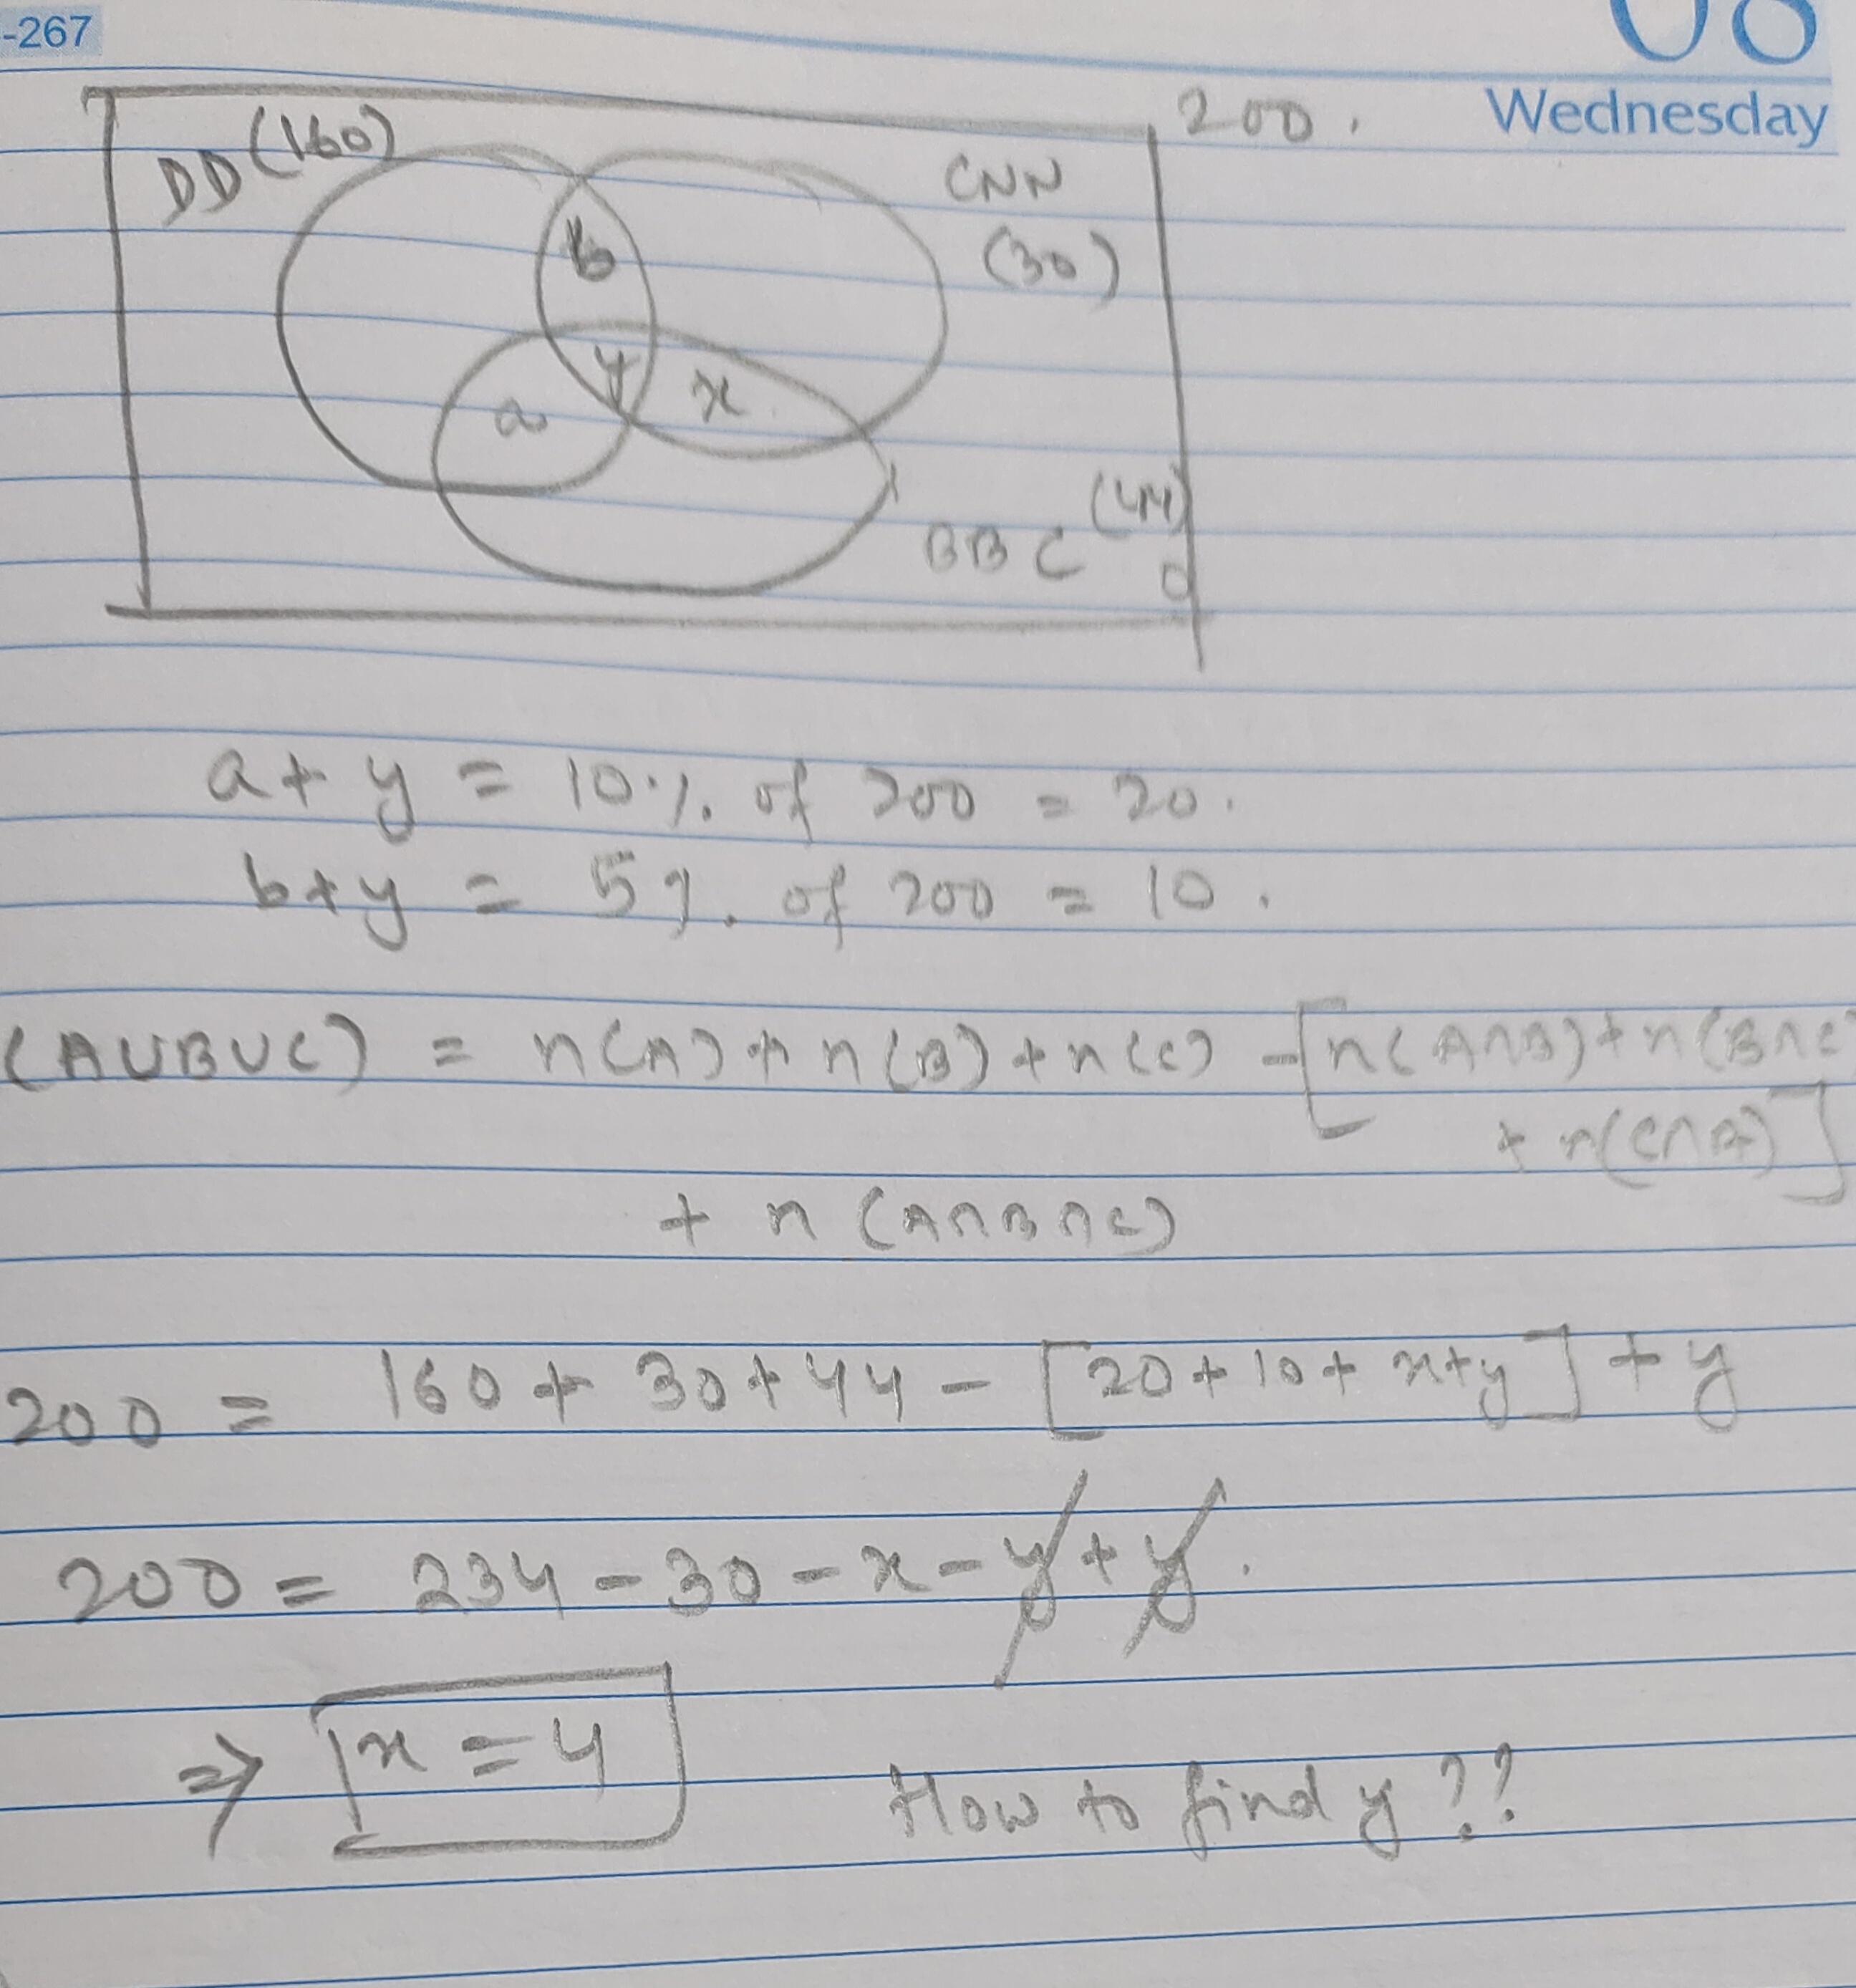 -267
08
Wednesday
DD (160)
200.
CNN
(30)
b
y
x
a
BBC (44)
0
a + y = 10% of 200 = 20.
b + y = 5% of 200 = 10.
(A∪B∪C) = n(A) + n(B) + n(C) - [n(A∩B) + n(B∩C)
+ n(C∩A)]
+ n (A∩B∩C)
200 = 160 + 30 + 44 - [20 + 10 + x + y] + y
200 = 234 - 30 - x - y + y.
⇒ x = 4
How to find y??